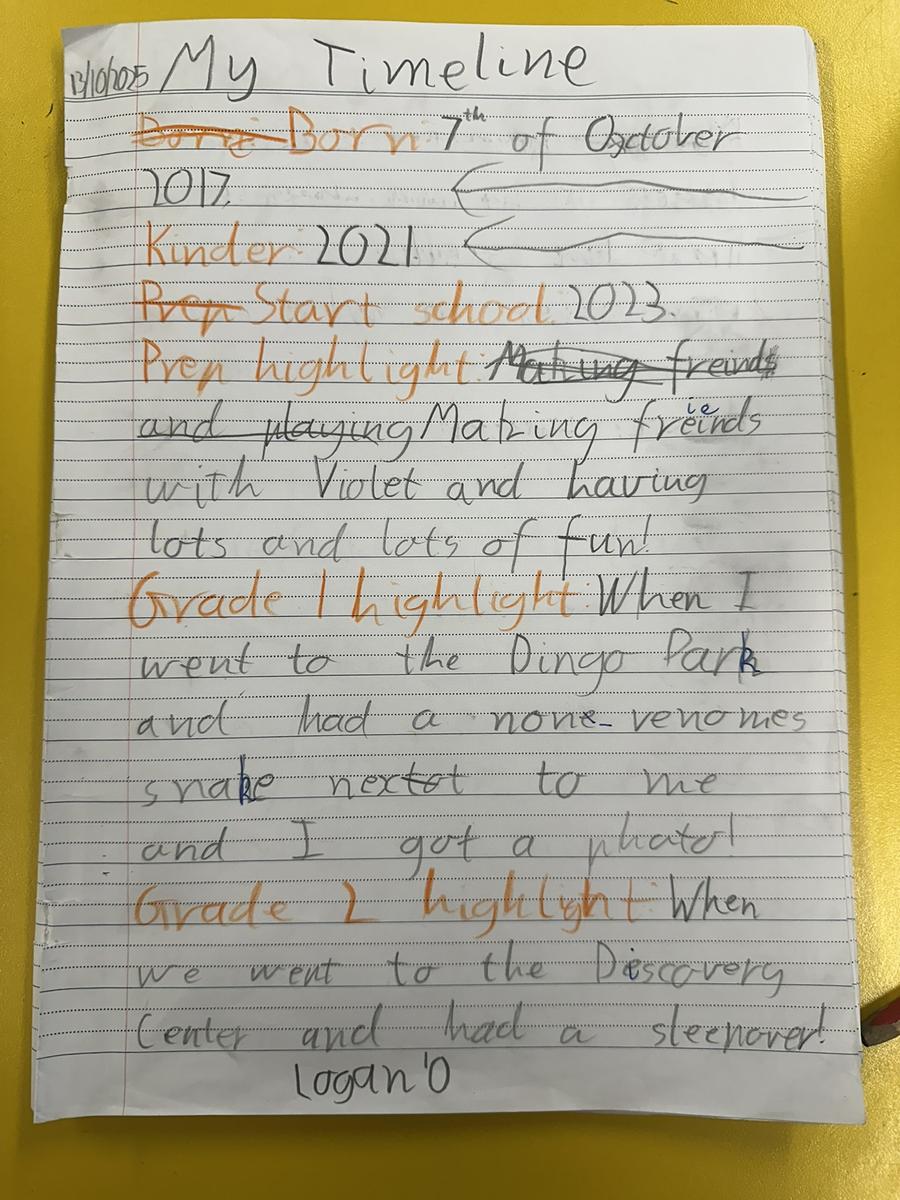 13/10/2025 My Timeline
Born: Born 7th of October
2017.
Kinder: 2021.
Prep Start school 2023.
Prep highlight: Making freinds
and playing Making freinds ie
with Violet and having
lots and lots of fun!
Grade 1 highlight: When I
went to the Dingo Park
and had a none-venomes
snake nextot to me
and I got a phato!
Grade 2 highlight: When
we went to the Discovery
Center and had a sleepover!
Logan'O